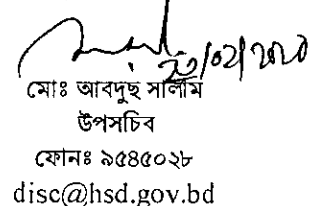 ২৩/০২/২০২০
মোঃ আবদুছ সালাম
উপসচিব
ফোনঃ ৯৫৪৫০২৮
disc@hsd.gov.bd